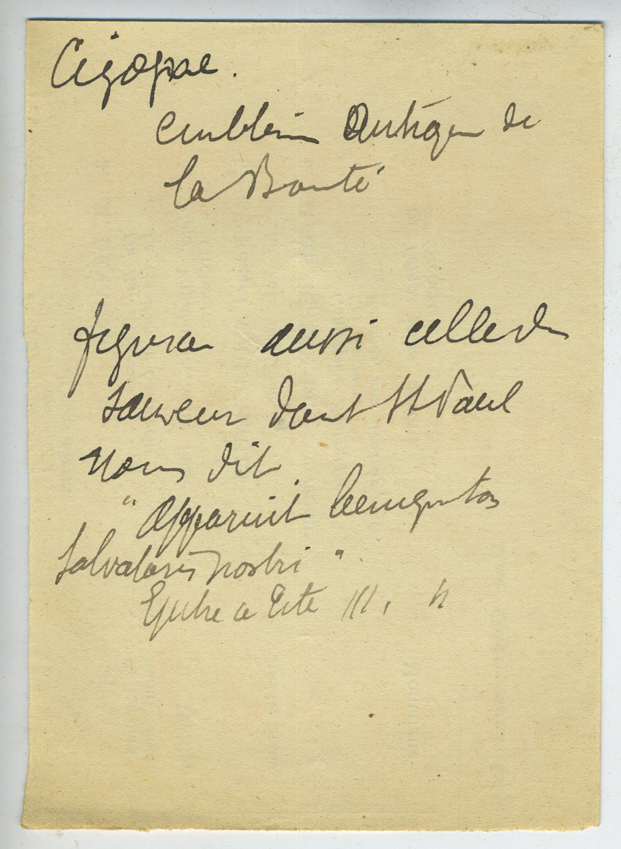 Cigogne.
emblème Antique de
la Bonté
figurera aussi celle du
Sauveur dont St Paul
nous dit
" Apparuit benignitas
Salvatoris nostri "
Epitre a Tite III, 4